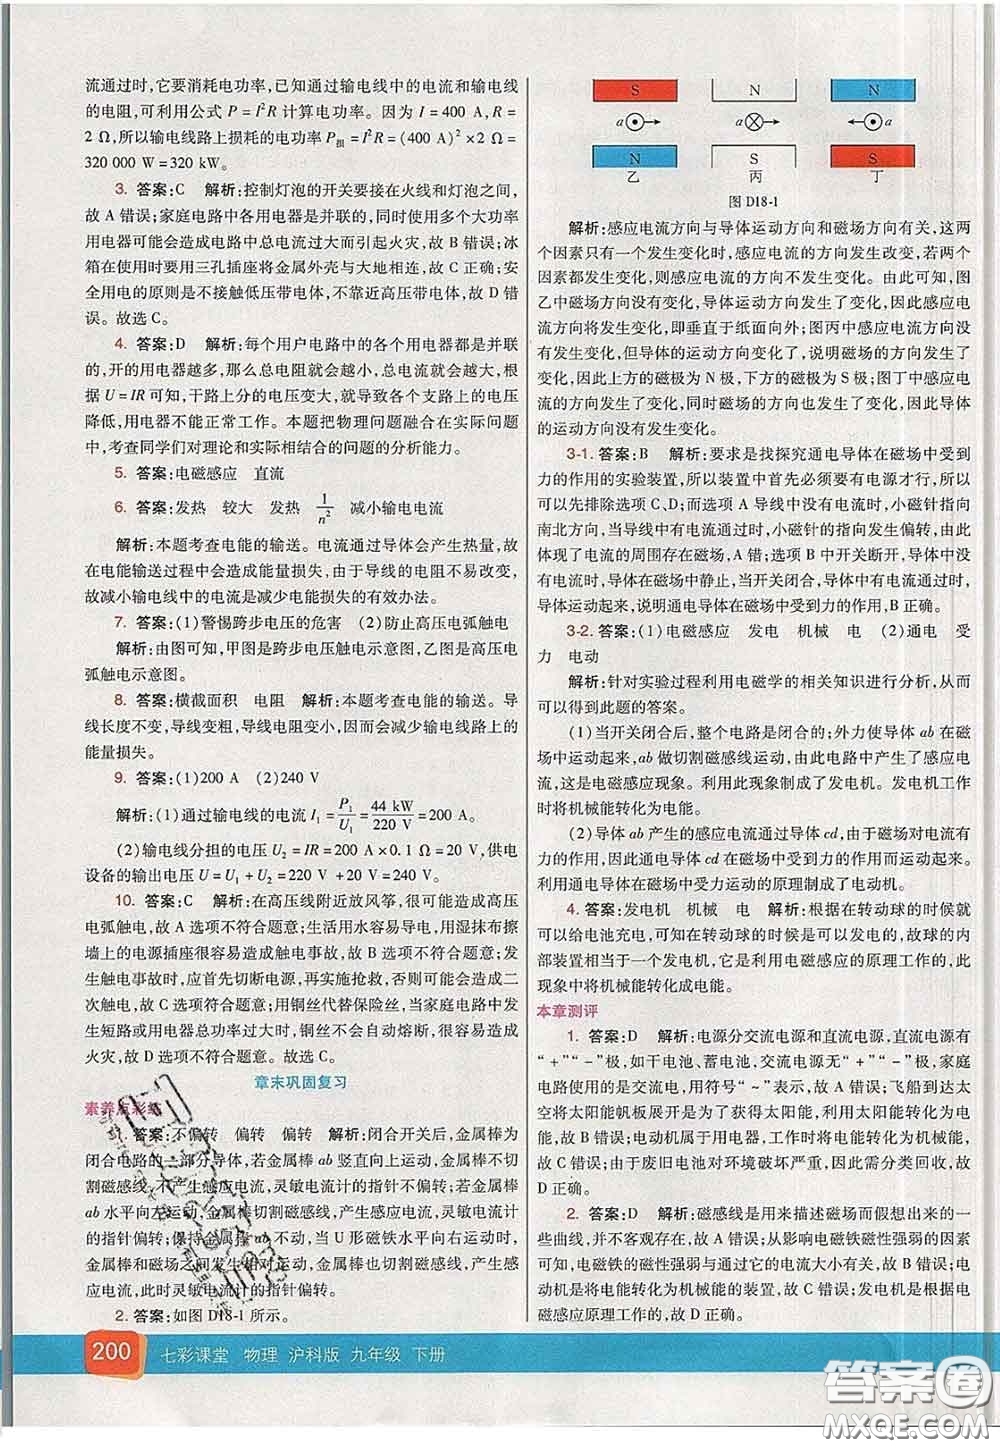 流通过时,它要消耗电功率,已知通过输电线中的电流和输电线
的电阻,可利用公式 P = I²R 计算电功率。因为 I = 400 A,R =
2 Ω,所以输电线路上损耗的电功率 P损 = I²R = (400 A)² × 2 Ω =
320 000 W = 320 kW。
3. 答案:C 解析:控制灯泡的开关要接在火线和灯泡之间,
故 A 错误;家庭电路中各用电器是并联的,同时使用多个大功率
用电器可能会造成电路中总电流过大引起火灾,故 B 错误;冰
箱在使用时要用三孔插座将金属外壳与大地相连,故 C 正确;安
全用电的原则是不接触低压带电体,不靠近高压带电体,故 D 错
误。故选 C。
4. 答案:D 解析:每个用户电路中的各个用电器都是并联
的,开的用电器越多,那么总电阻就会越小,总电流就会越大,根
据 U = IR 可知,干路上分的电压变大,就导致各个支路上的电压
降低,用电器不能正常工作。本题把物理问题融合在实际问题
中,考查同学们对理论和实际相结合的问题的分析能力。
5. 答案:电磁感应 直流
6. 答案:发热 较大 发热 1/n² 减小输电电流
解析:本题考查电能的输送。电流通过导体会产生热量,故
在电能输送过程中会造成能量损失,由于导线的电阻不易改变,
故减小输电线中的电流是减少电能损失的有效办法。
7. 答案:(1)警惕跨步电压的危害 (2)防止高压电弧触电
解析:由图可知,甲图是跨步电压触电示意图,乙图是高压电
弧触电示意图。
8. 答案:横截面积 电阻 解析:本题考查电能的输送。导
线长度不变,导线变粗,导线电阻变小,因而会减少输电线路上的
能量损失。
9. 答案:(1)200 A (2)240 V
解析:(1)通过输电线的电流 I₁ = P₁/U₁ = 44 kW/220 V = 200 A。
(2)输电线分担的电压 U₂ = IR = 200 A × 0.1 Ω = 20 V,供电
设备的输出电压 U = U₁ + U₂ = 220 V + 20 V = 240 V。
10. 答案:C 解析:在高压线附近放风筝,很容易造成高压
电弧触电,故 A 选项不符合题意;生活用水容易导电,用湿抹布擦
墙上的电源插座很容易造成触电事故,故 B 选项不符合题意;发
生触电事故时,应首先切断电源,再实施抢救,否则容易造成二
次触电,故 C 选项符合题意;用铜丝代替保险丝,当家庭电路中发
生短路或用电器总功率过大时,铜丝不会自动熔断,很容易造成
火灾,故 D 选项不符合题意。故选 C。
章末巩固复习
素养点彩练
1. 答案:不偏转 偏转 偏转 解析:闭合开关后,金属棒为
闭合电路的一部分导体,若金属棒 ab 竖直向上运动,金属棒不切
割磁感线,不产生感应电流,灵敏电流计的指针不偏转;若金属棒
ab 水平向左运动,金属棒切割磁感线,产生感应电流,灵敏电流计
的指针偏转;保持金属棒 ab 不动,当 U 形磁铁水平向右运动时,
金属棒和磁场之间发生相对运动,金属棒也切割磁感线,产生感应
电流,此时灵敏电流计的指针偏转。
2. 答案:如图 D18-1 所示。
S N N
a a a
N S S
乙 丙 丁
图 D18-1
解析:感应电流方向与导体运动方向和磁场方向有关,这两
个因素只有一个发生变化时,感应电流的方向发生改变,若两个
因素都发生变化,则感应电流的方向不发生变化。由此可知,图
乙中磁场方向没有变化,导体运动方向发生了变化,因此感应电
流方向将发生变化,即垂直于纸面向外;图丙中感应电流方向没
有发生变化,但导体的运动方向变化了,说明磁场的方向发生了
变化,因此上方的磁极为 N 极,下方的磁极为 S 极;图丁中感应电
流的方向发生了变化,同时磁场的方向也发生了变化,因此导体
的运动方向没有发生变化。
3-1. 答案:B 解析:要求是找探究通电导体在磁场中受到
力的作用的实验装置,所以装置中首先必须要有电源才行,所以
可以先排除选项 C、D;而选项 A 导线中没有电流时,小磁针指向
南北方向,当导线中有电流通过时,小磁针的指向发生偏转,由此
体现了电流的周围存在磁场,A 错;选项 B 中开关断开,导体中没
有电流时,导体在磁场中静止,当开关闭合,导体中有电流通过时,
导体运动起来,说明通电导体在磁场中受到力的作用,B 正确。
3-2. 答案:(1)电磁感应 发电 机械 电 (2)通电 受
力 电动
解析:针对实验过程利用电磁学的相关知识进行分析,从而
可以得到此题的答案。
(1)当开关闭合后,整个电路是闭合的;外力使导体 ab 在磁
场中运动起来,ab 做切割磁感线运动,由此电路中产生了感应电
流,这是电磁感应现象。利用此现象制成了发电机。发电机工作
时将机械能转化为电能。
(2)导体 ab 产生的感应电流通过导体 cd,由于磁场对电流有
力的作用,因此通电导体 cd 在磁场中受到力的作用而运动起来。
利用通电导体在磁场中受力运动的原理制成了电动机。
4. 答案:发电机 机械 电 解析:根据在转动球的时候就
可以给电池充电,可知在转动球的时候是可以发电的,故球的内
部装置相当于一个发电机,它是利用电磁感应的原理工作的,此
现象中将机械能转化成电能。
本章测评
1. 答案:D 解析:电源分交流电源和直流电源,直流电源有
“+”“-”极,如干电池、蓄电池,交流电源无“+”“-”极,家庭
电路使用的是交流电,用符号“~”表示,故 A 错误;飞船到达太
空将太阳能帆板展开是为了获得太阳能,利用太阳能转化为电
能,故 B 错误;电动机属于用电器,工作时将电能转化为机械能,
故 C 错误;由于废旧电池对环境破坏严重,因此需分类回收,故
D 正确。
2. 答案:D 解析:磁感线是用来描述磁场而假想出来的一
些曲线,并不客观存在,故 A 错误;从影响电磁铁磁性强弱的因素
可知,电磁铁的磁性强弱与通过它的电流大小有关,故 B 错误;电
动机是将电能转化为机械能的装置,故 C 错误;发电机是根据电
磁感应原理工作的,故 D 正确。
200 七彩课堂 物理 沪科版 九年级 下册
答案圈
MXQE.COM